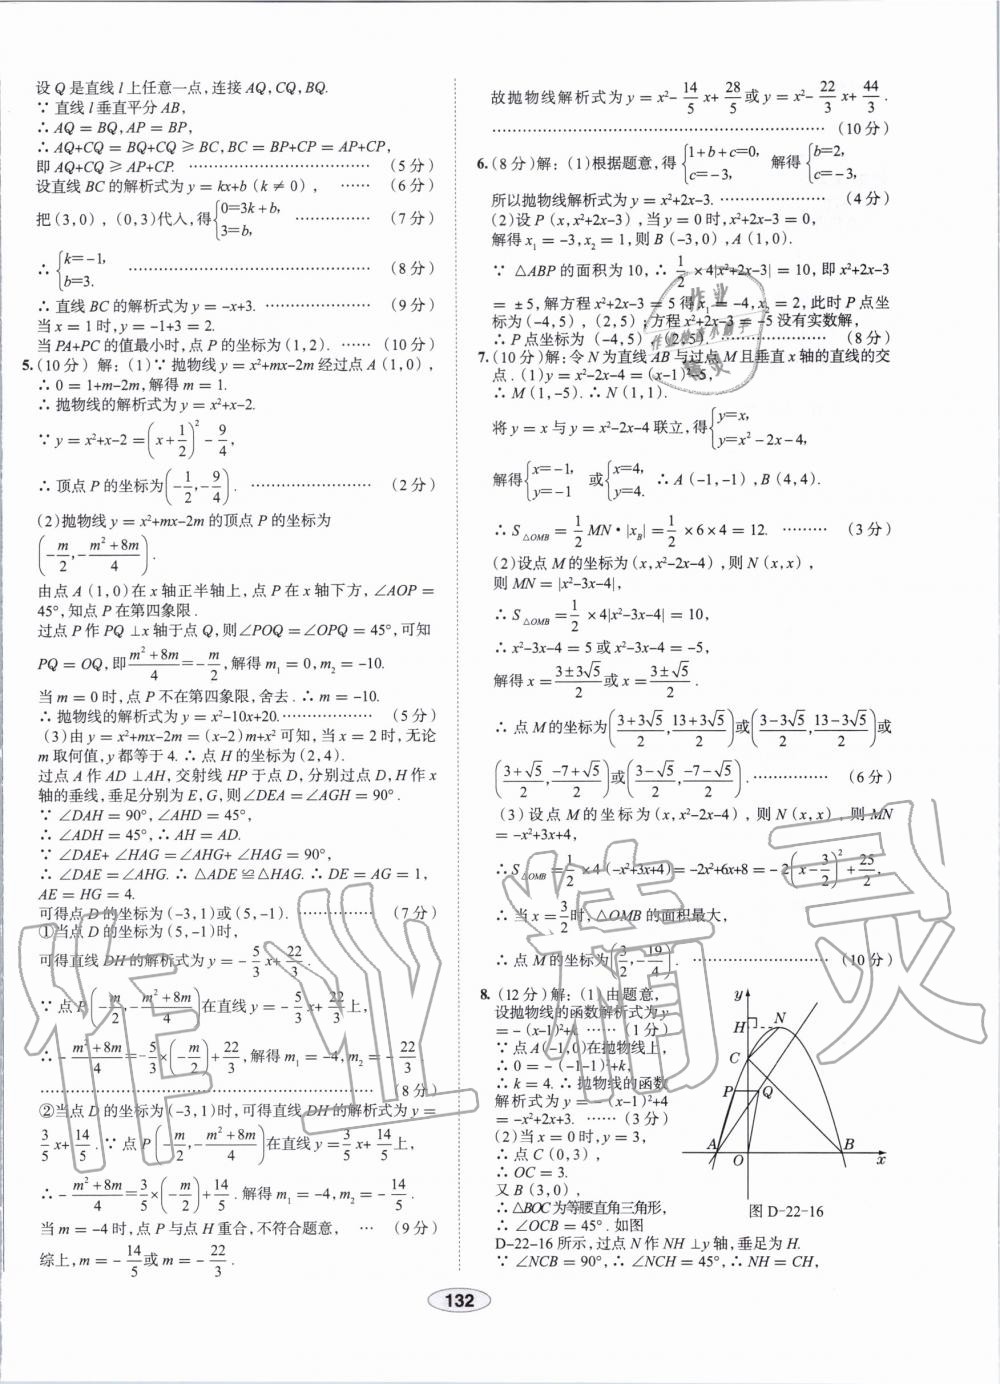 设 Q 是直线 l 上任意一点,连接 AQ,CQ,BQ.
∵ 直线 l 垂直平分 AB,
∴ AQ = BQ,AP = BP,
∴ AQ+CQ = BQ+CQ ≥ BC,BC = BP+CP = AP+CP,
即 AQ+CQ ≥ AP+CP. …………………… (5 分)
设直线 BC 的解析式为 y = kx+b (k ≠ 0), …… (6 分)
把 (3,0),(0,3)代入,得{0=3k+b, 3=b, …………… (7 分)
∴ {k=-1, b=3. …………………… (8 分)
∴ 直线 BC 的解析式为 y = -x+3. …………… (9 分)
当 x = 1 时,y = -1+3 = 2.
当 PA+PC 的值最小时,点 P 的坐标为 (1,2). …… (10 分)
5.(10 分) 解:(1)∵ 抛物线 y = x²+mx-2m 经过点 A (1,0),
∴ 0 = 1+m-2m,解得 m = 1.
∴ 抛物线的解析式为 y = x²+x-2.
∵ y = x²+x-2 = (x+1/2)² - 9/4,
∴ 顶点 P 的坐标为(-1/2,-9/4). …………………… (2 分)
(2)抛物线 y = x²+mx-2m 的顶点 P 的坐标为
(-m/2,-(m²+8m)/4).
由点 A (1,0)在 x 轴正半轴上,点 P 在 x 轴下方,∠AOP =
45°,知点 P 在第四象限.
过点 P 作 PQ ⊥x 轴于点 Q,则∠POQ = ∠OPQ = 45°,可知
PQ = OQ,即(m²+8m)/4=-m/2,解得 m₁ = 0,m₂ = -10.
当 m = 0 时,点 P 不在第四象限,舍去.∴ m = -10.
∴ 抛物线的解析式为 y = x²-10x+20.……………… (5 分)
(3)由 y = x²+mx-2m = (x-2)m+x² 可知,当 x = 2 时,无论
m 取何值,y 都等于 4.∴ 点 H 的坐标为 (2,4).
过点 A 作 AD ⊥AH,交射线 HP 于点 D,分别过点 D,H 作 x
轴的垂线,垂足分别为 E,G,则∠DEA = ∠AGH = 90°.
∵ ∠DAH = 90°,∠AHD = 45°,
∴ ∠ADH = 45°,∴ AH = AD.
∵ ∠DAE+ ∠HAG = ∠AHG+ ∠HAG = 90°,
∴ ∠DAE = ∠AHG.∴ △ADE ≌△HAG.∴ DE = AG = 1,
AE = HG = 4.
可得点 D 的坐标为 (-3,1)或 (5,-1). …………… (7 分)
①当点 D 的坐标为 (5,-1)时,
可得直线 DH 的解析式为 y = -5/3 x+22/3.
∵ 点 P(-m/2,-(m²+8m)/4)在直线 y = -5/3 x+22/3上,
∴-(m²+8m)/4=-5/3×(-m/2)+22/3,解得 m₁ = -4,m₂=-22/3.
…………………… (8 分)
②当点 D 的坐标为 (-3,1)时,可得直线DH的解析式为 y =
3/5 x+14/5.∵ 点 P(-m/2,-(m²+8m)/4)在直线 y=3/5 x+14/5上,
∴-(m²+8m)/4=3/5×(-m/2)+14/5.解得 m₁ = -4,m₂=-14/5.
当 m = -4 时,点 P 与点 H 重合,不符合题意, … (9 分)
综上,m = -14/5或 m = -22/3.
故抛物线解析式为 y = x²-14/5 x+28/5或 y = x²-22/3 x+44/3.
…………………… (10 分)
6.(8 分)解:(1)根据题意,得{1+b+c=0, c=-3, 解得{b=2, c=-3,
所以抛物线解析式为 y = x²+2x-3. ………………… (4 分)
(2)设 P (x,x²+2x-3),当 y = 0 时,x²+2x-3 = 0,
解得 x₁ = -3,x₂ = 1,则 B (-3,0),A (1,0).
∵ △ABP 的面积为 10,∴ 1/2 ×4|x²+2x-3| = 10,即 x²+2x-3
= ±5,解方程 x²+2x-3 = 5 得x₁ = -4,x₂ = 2,此时 P 点坐
标为 (-4,5),(2,5);方程 x²+2x-3 = -5 没有实数解,
∴ P 点坐标为 (-4,5),(2,5).………………… (8 分)
7.(10 分)解:令 N 为直线 AB 与过点 M 且垂直 x 轴的直线的交
点.(1)y = x²-2x-4 = (x-1)²-5,
∴ M (1,-5).∴ N (1,1).
将 y = x 与 y = x²-2x-4 联立,得{y=x, y=x²-2x-4,
解得{x=-1, y=-1 或{x=4, y=4. ∴ A (-1,-1),B (4,4).
∴ S△OMB = 1/2 MN·|x_B| = 1/2 × 6 × 4 = 12. ……… (3 分)
(2)设点 M 的坐标为 (x,x²-2x-4),则 N (x,x),
则 MN = |x²-3x-4|,
∴ S△OMB = 1/2 ×4|x²-3x-4| = 10,
∴ x²-3x-4 = 5 或 x²-3x-4 = -5,
解得 x = (3±3√5)/2或 x = (3±√5)/2.
∴ 点 M 的坐标为((3+3√5)/2,(13+3√5)/2)或((3-3√5)/2,(13-3√5)/2)或
((3+√5)/2,(-7+√5)/2)或((3-√5)/2,(-7-√5)/2).…………… (6 分)
(3)设点 M 的坐标为 (x,x²-2x-4),则 N (x,x),则 MN
= -x²+3x+4,
∴S△OMB = 1/2 ×4 (-x²+3x+4)= -2x²+6x+8 = -2(x-3/2)²+25/2,
∴ 当 x = 3/2时,△OMB 的面积最大,
∴ 点 M 的坐标为(3/2,-19/4). …………… (10 分)
8.(12 分)解:(1) 由题意,
设抛物线的函数解析式为 y
= - (x-1)²+k, …… (1 分)
∵ 点 A (-1,0)在抛物线上,
∴ 0 = - (-1-1)²+k,
∴ k = 4.∴ 抛物线的函数
解析式为 y = - (x-1)²+4
= -x²+2x+3. …… (3 分)
(2)当 x = 0 时,y = 3,
∴ 点 C (0,3),
∴ OC = 3.
又 B (3,0),
∴ △BOC 为等腰直角三角形,
∴ ∠OCB = 45°.如图
D-22-16 所示,过点 N 作 NH ⊥y 轴,垂足为 H.
∵ ∠NCB = 90°,∴ ∠NCH = 45°,∴ NH = CH,
y
H N
C
P Q
A O B x
图 D-22-16
132
作业精灵
作业
精灵